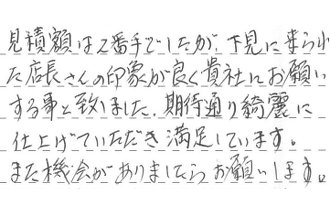 見積額は2番手でしたが、下見に来られ
た店長さんの印象が良く貴社にお願い
する事と致しました。期待通り綺麗に
仕上げていただき満足しています。
また機会がありましたらお願いします。